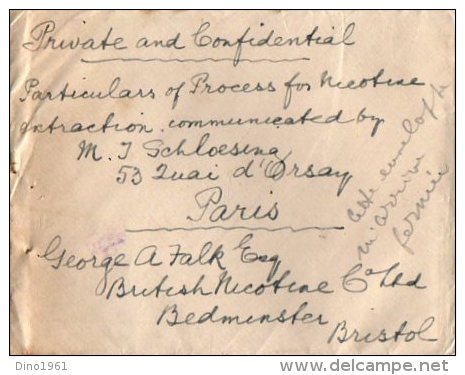 Private and Confidential
Particulars of Process for Nicotine
extraction. communicated by
M. T Schloesing
53 Quai d'Orsay
Paris
George A Falk Esq
British Nicotine Co Ltd
Bedminster
Bristol
cette enveloppe
m'arrive
fermée
Dino1961
delcampe.net